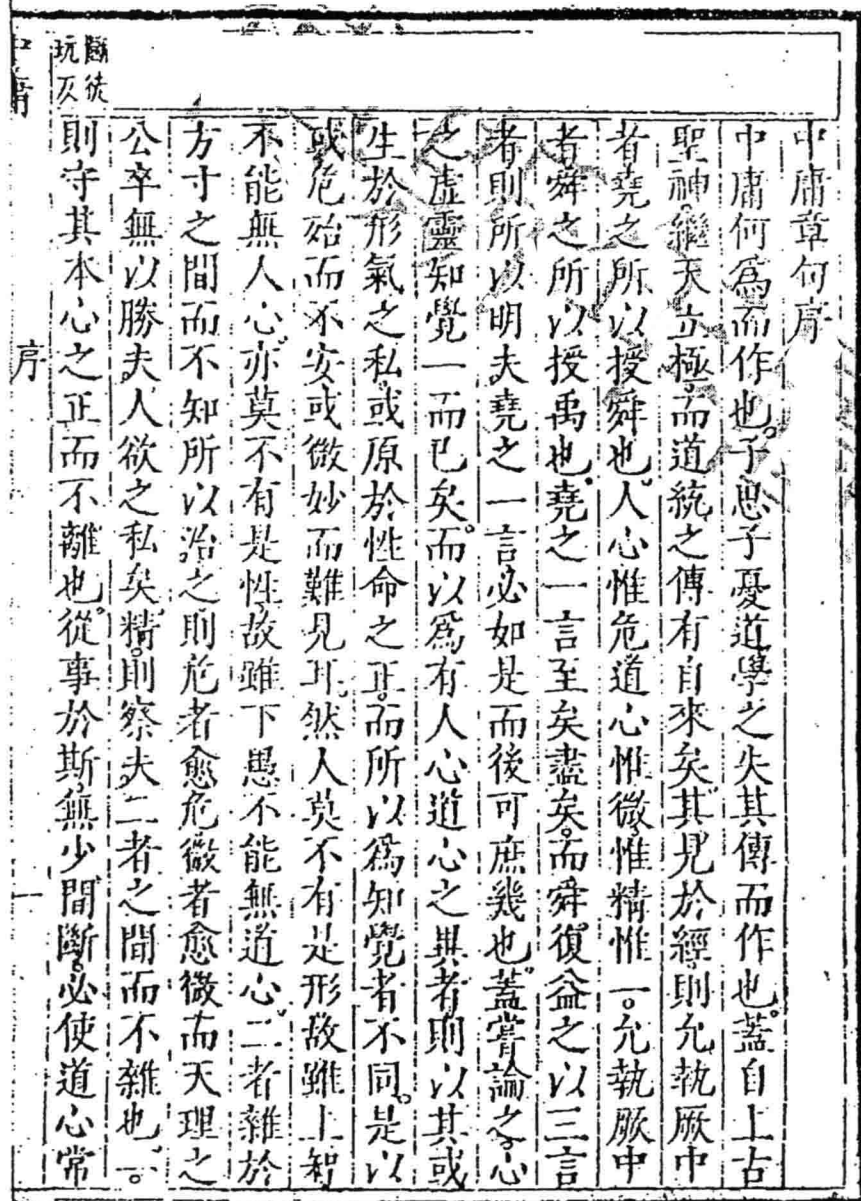 中庸章句序
中庸何為而作也。子思子憂道學之失其傳而作也。蓋自上古
聖神繼天立極。而道統之傳有自來矣。其見於經。則允執厥中
者堯之所以授舜也。人心惟危道心惟微。惟精惟一。允執厥中
者舜之所以授禹也。堯之一言至矣盡矣。而舜復益之以三言
者則所以明夫堯之一言必如是而後可庶幾也。蓋嘗論之。心
之虛靈知覺一而已矣。而以爲有人心道心之異者。則以其或
生於形氣之私。或原於性命之正。而所以爲知覺者不同。是以
或危殆而不安或微妙而難見耳。然人莫不有是形故雖上智
不能無人心。亦莫不有是性。故雖下愚不能無道心。二者雜於
方寸之間而不知所以治之。則危者愈危微者愈微而天理之
公卒無以勝夫人欲之私矣。精則察夫二者之間而不雜也。一
則守其本心之正而不離也。從事於斯。無少間斷。必使道心常
斷徒
玩反
中庸
序
一